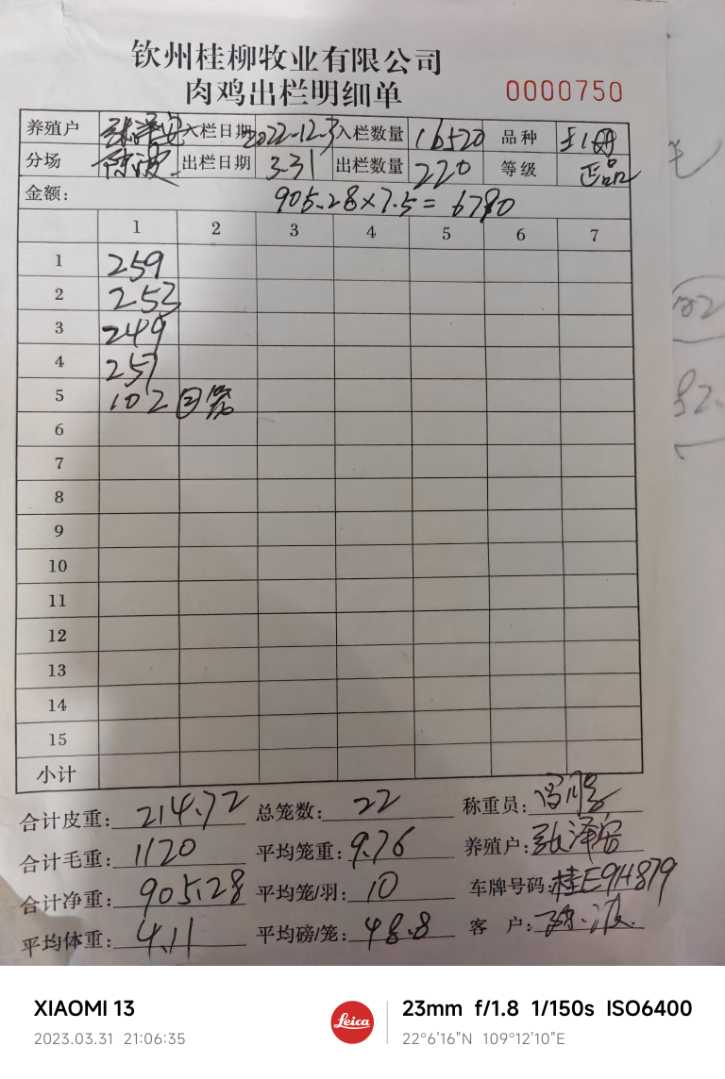 钦州桂柳牧业有限公司
肉鸡出栏明细单 0000750
养殖户 张泽安 入栏日期 2022-12-3 入栏数量 16520 品种
分场 出栏日期 3.31 出栏数量 220 等级 正品
金额: 905.28×7.5= 6790
1 2 3 4 5 6 7
1 259
2 253
3 249
4 257
5 102 回笼
6
7
8
9
10
11
12
13
14
15
小计
合计皮重: 214.72 总笼数: 22 称重员:
合计毛重: 1120 平均笼重: 9.76 养殖户: 张泽安
合计净重: 905.28 平均笼/羽: 10 车牌号码: 桂E9H879
平均体重: 4.11 平均磅/笼: 48.8 客户:
XIAOMI 13
2023.03.31 21:06:35
Leica
23mm f/1.8 1/150s ISO6400
22°6'16"N 109°12'10"E